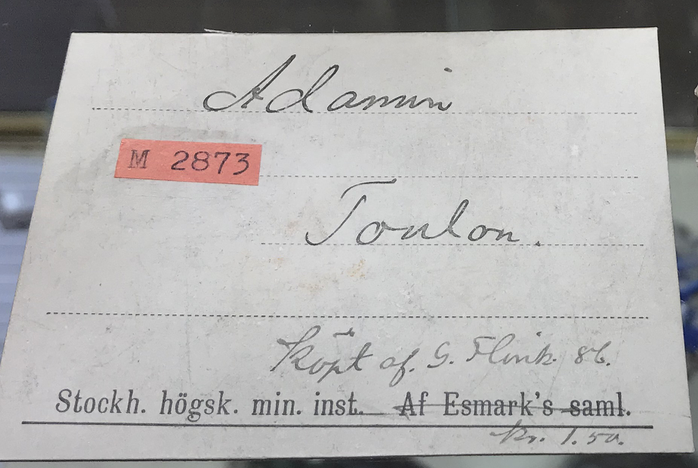 Adamin
M 2873
Toulon.
Köpt af. G. Flink. 86.
Stockh. högsk. min. inst. Af Esmark's saml.
kr. 1.50.